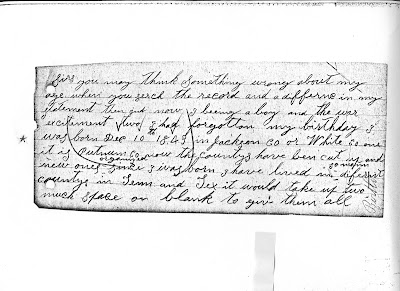 Sirs you may think something wrong about my
age when you serch the record and a differnc in my
statement then and now I being a boy and the war
excitement I had forgotton my birthday I
was born Dec 10th 1843 in Jackson Co or White Co one
it is Putnum Co now the countys have ben cut up and
organized
new ones since I was born I have lived in diferent
countys in Tenn and Tex it would take up two
much space on blank to giv them all